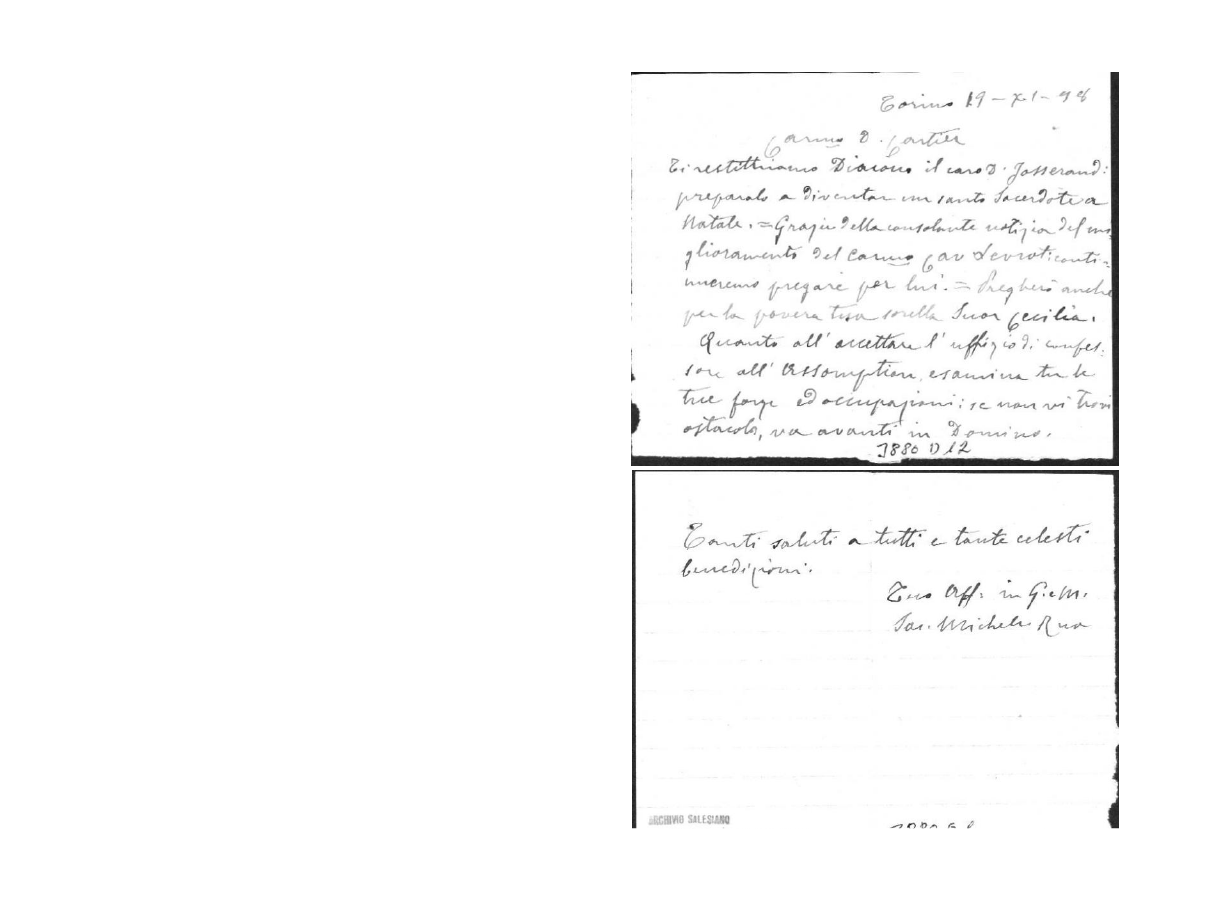 Torino 19 - XI - 98
Carmo D. Cartier
Ti restituiamo Diacono il caro D. Josserand:
preparalo a diventar un santo Sacerdote a
Natale. = Grazie della consolante notizia del mi-
glioramento del Carmo Cav Levrot: conti-
nueremo pregare per lui. = Pregherò anche
per la povera tua sorella Suor Cecilia.
Quanto all' accettare l' uffizio di confes-
sore all' Assomption, esamina tu le
tue forze ed occupazioni: se non vi trovi
ostacolo, va avanti in Domino.
3880 D 12
Tanti saluti a tutti e tante celesti
benedizioni.
Tuo Aff. in G. e M.
Sac. Michele Rua
ARCHIVIO SALESIANO